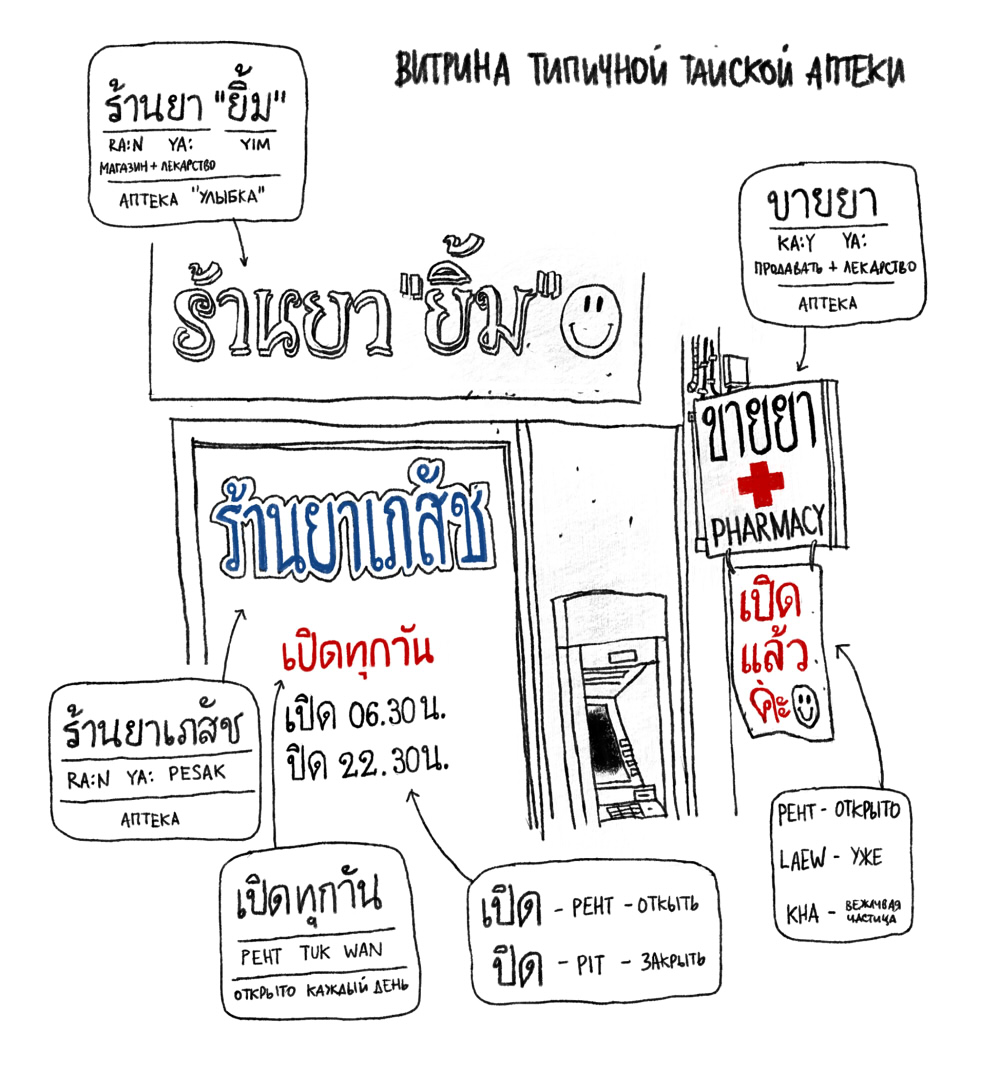 ВИТРИНА ТИПИЧНОЙ ТАЙСКОЙ АПТЕКИ
ร้านยา "ยิ้ม"
RA:N YA: YIM
МАГАЗИН + ЛЕКАРСТВО
АПТЕКА "УЛЫБКА"
ขายยา
KA:Y YA:
ПРОДАВАТЬ + ЛЕКАРСТВО
АПТЕКА
ร้านยา "ยิ้ม"
ขายยา
PHARMACY
ร้านยาเภสัช
เปิดทุกวัน
เปิด 06.30 น.
ปิด 22.30 น.
เปิด
แล้ว
ค่ะ
ร้านยาเภสัช
RA:N YA: PESAK
АПТЕКА
เปิดทุกวัน
PEHT TUK WAN
ОТКРЫТО КАЖДЫЙ ДЕНЬ
เปิด - PEHT - ОТКЫТЬ
ปิด - PIT - ЗАКРЫТЬ
PEHT - ОТКРЫТО
LAEW - УЖЕ
KHA - ВЕЖЛИВАЯ
ЧАСТИЦА